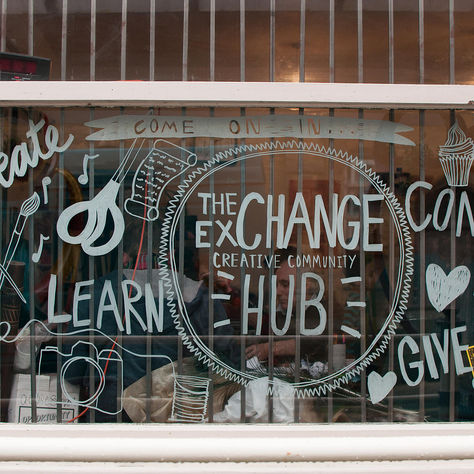 COME ON IN...
eate
THE
EXCHANGE
CREATIVE COMMUNITY
HUB
CON
LEARN
GIVE
OPPORTUNITY